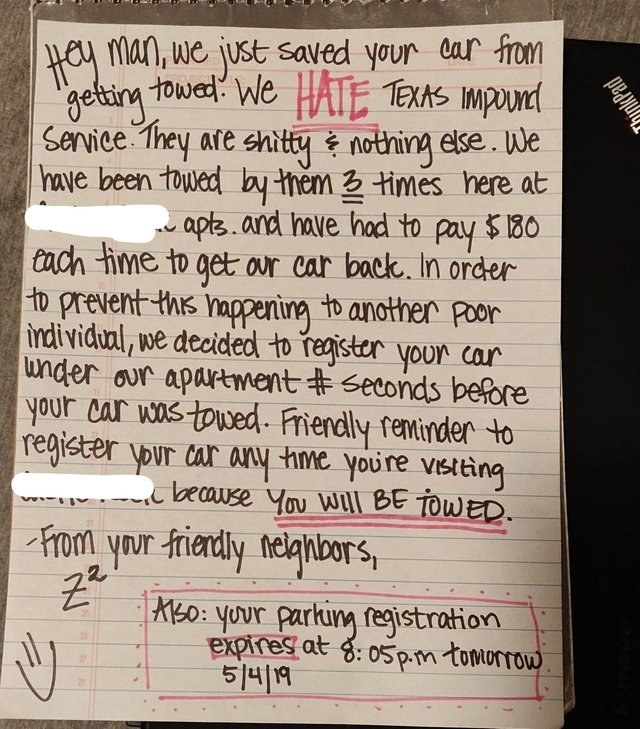 Hey man, we just saved your car from
getting towed. We HATE TEXAS IMPOUND
Service. They are shitty & nothing else. We
have been towed by them 3 times here at
apts. and have had to pay $180
each time to get our car back. In order
to prevent this happening to another poor
individual, we decided to register your car
under our apartment # seconds before
your car was towed. Friendly reminder to
register your car any time you're visiting
because YOU WILL BE TOWED.
-From your friendly neighbors,
Z²
Also: your parking registration
expires at 8:05p.m tomorrow
5/4/19
ThinkPad